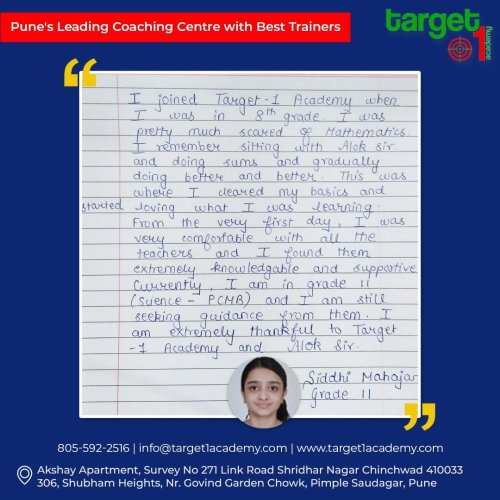 Pune's Leading Coaching Centre with Best Trainers
target
1
academy
I joined Target-1 Academy when
I was in 8th grade. I was
pretty much scared of Mathematics.
I remember sitting with Alok sir
and doing sums and gradually
doing better and better. This was
where I cleared my basics and
started loving what I was learning.
From the very first day, I was
very comfortable with all the
teachers and I found them
extremely knowledgable and supportive
Currently, I am in grade 11
(Science - PCMB) and I am still
seeking guidance from them. I
am extremely thankful to Target
-1 Academy and Alok Sir.
Siddhi Mahajan
Grade 11
805-592-2516 | info@target1academy.com | www.target1academy.com
Akshay Apartment, Survey No 271 Link Road Shridhar Nagar Chinchwad 410033
306, Shubham Heights, Nr. Govind Garden Chowk, Pimple Saudagar, Pune